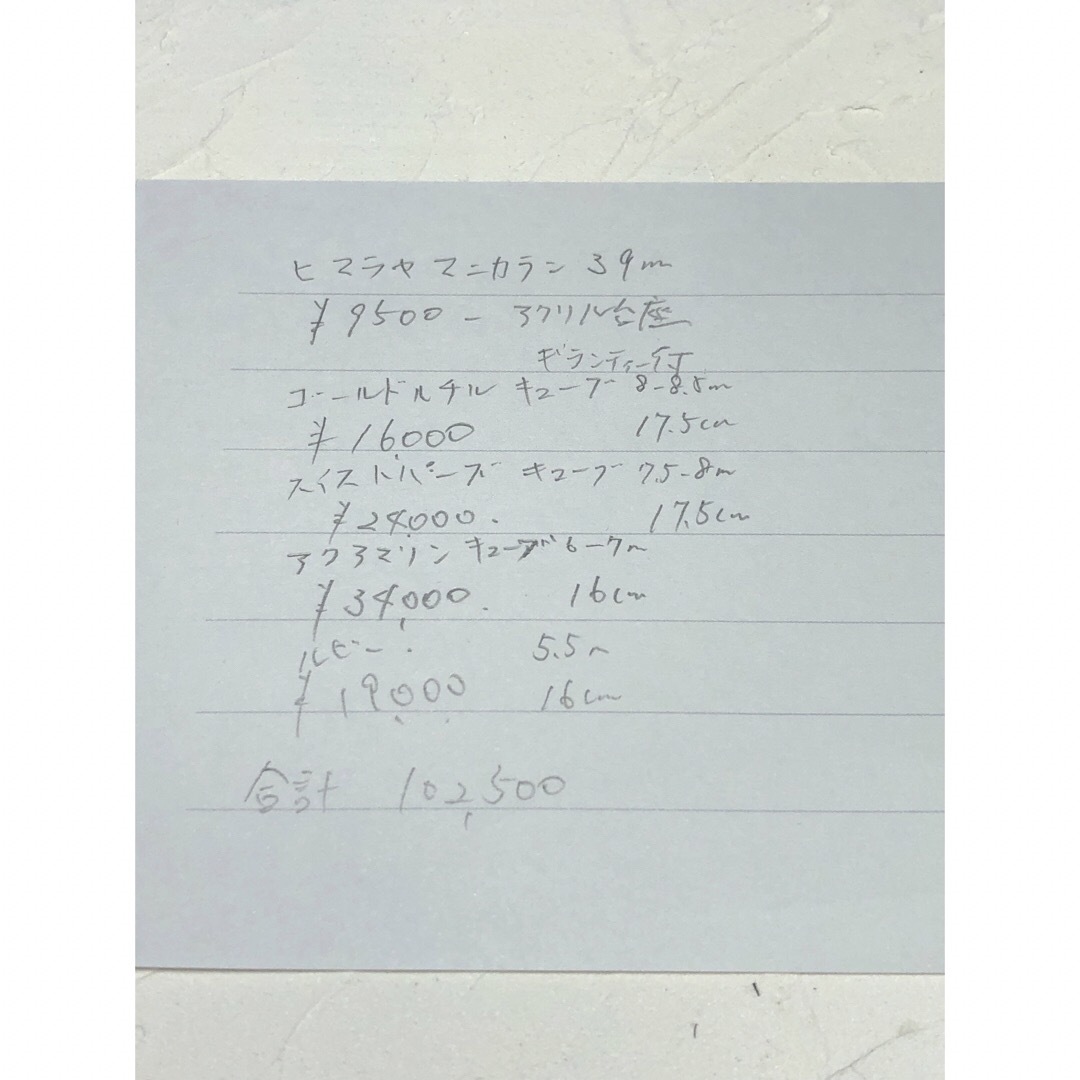 ヒマラヤマニカラン 39m
¥9500- アクリル台座
ギランティー付
ゴールドルチル キューブ 8-8.5m
¥16,000 17.5cm
スイストパーズ キューブ 7.5-8m
¥24,000. 17.5cm
アクアマリン キューブ 6-7m
¥34,000. 16cm
ルビー. 5.5m
¥19,000 16cm
合計 102,500